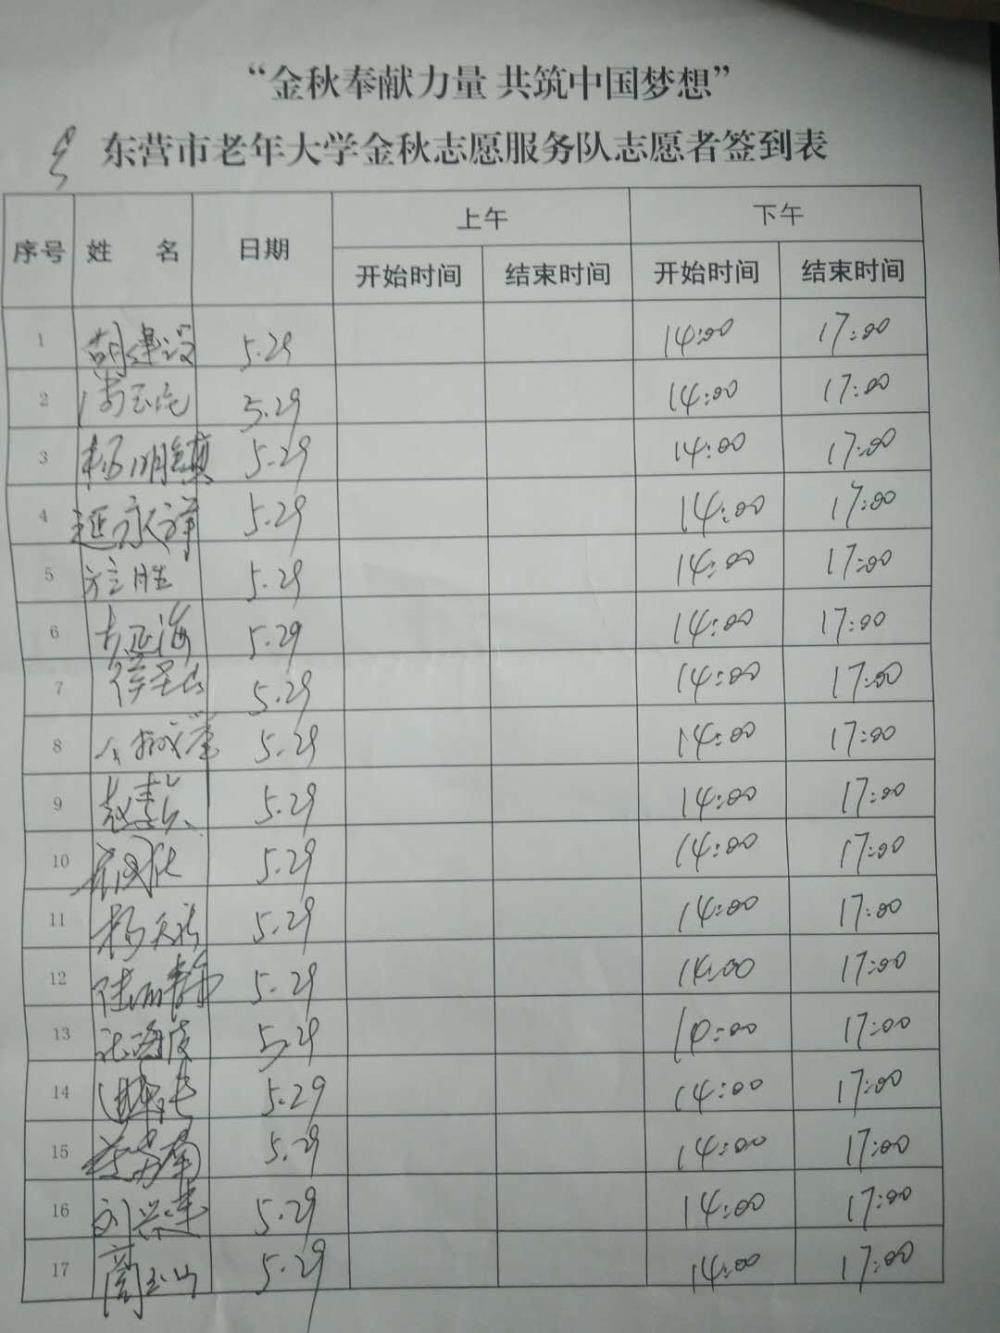 “金秋奉献力量 共筑中国梦想”
东营市老年大学金秋志愿服务队志愿者签到表
序号 姓 名 日期 上午 下午
开始时间 结束时间 开始时间 结束时间
1 胡建设 5.29 14:00 17:00
2 5.29 14:00 17:00
3 杨明镇 5.29 14:00 17:00
4 延永祥 5.29 14:00 17:00
5 5.29 14:00 17:00
6 5.29 14:00 17:00
7 5.29 14:00 17:00
8 5.29 14:00 17:00
9 5.29 14:00 17:00
10 5.29 14:00 17:00
11 5.29 14:00 17:00
12 5.29 14:00 17:00
13 5.29 17:00
14 5.29 14:00 17:00
15 5.29 14:00 17:00
16 刘兴连 5.29 14:00 17:00
17 5.29 14:00 17:00